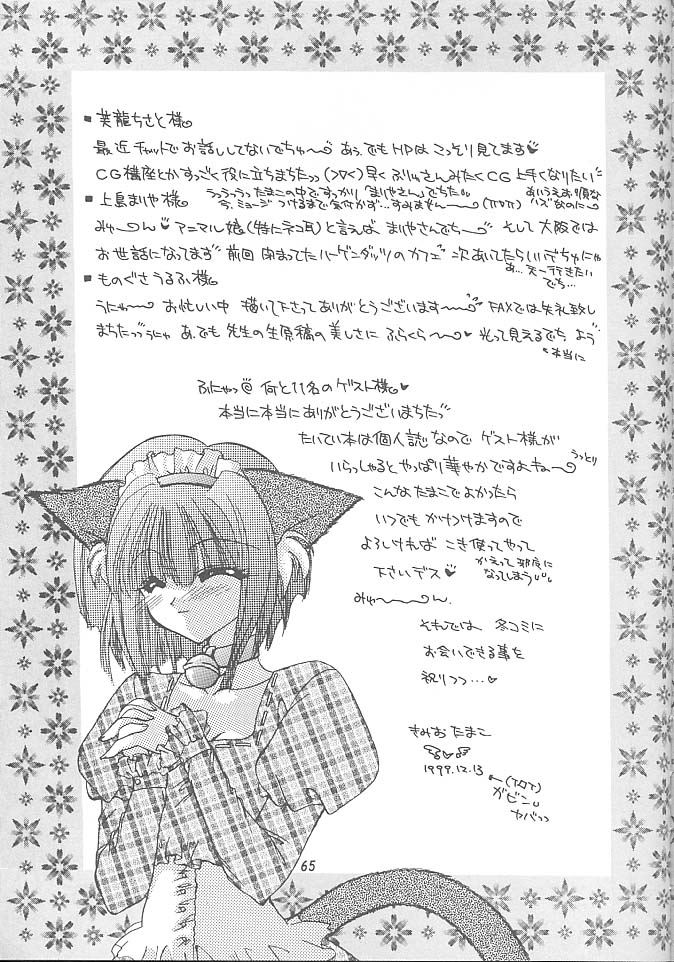 ■ 美龍ちさと様
最近チャットでお話ししてないでちゅ〜 あぅ、でもHPはこっそり見てます♥
CG講座とかすっごく役に立ちまちたっっ 早く ふりゅさんみたく CG上手くなりたい
■ 上島まりや様
うっうっうっ たまこの中ですっかり「まりやさん」でちた
あいうえお順な
ハズなのに
今、ミュージつけるまで気付かず…すみません〜 (TДT)
みゅ〜ん♥アニマル娘(特にネコ耳)と言えば まりやさんでち〜 そして大阪では
お世話になってます 前回 閉まってたハーゲンダッツのカフェ 次あいてたらいいでちゃにゃ
あ…天一行きたい
でち…
■ ものぐさうるふ様
うにゃ〜 お忙しい中 描いて下さってありがとうございます〜 FAXでは失礼致し
まちたっっうにゃ あ、でも先生の生原稿の美しさに ふらくら〜♥光って見えるでち よう
本当に
ふにゃっ@ 何と11名のゲスト様♥
本当に本当にありがとうございまちたっっ
たいてい本は個人誌なので ゲスト様が
いらっしゃると やっぱり華やかですよねゅ〜 うっとり
こんなたまこでよかったら
いつでも かけつけますので
よろしければ こき使ってやって
下さいデス♥
かえって邪魔に
なってしまう
みゅ〜ん.
それでは 冬コミに
お会いできる事を
祝りつつ…♥
きみおたまこ
1999.12.13
←(TДT)
ガビン
ヤバっっ
65